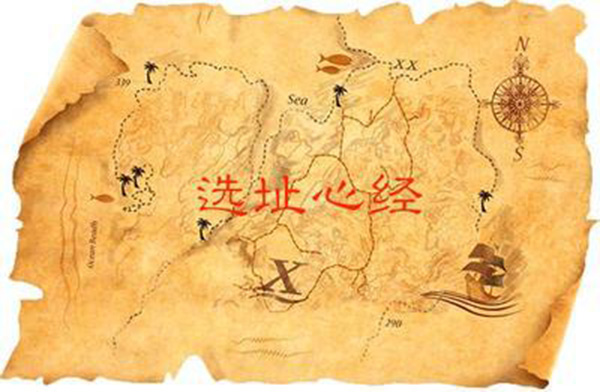 N
XX
339
Sea
S
选址心经
Ocean Beach
X
290